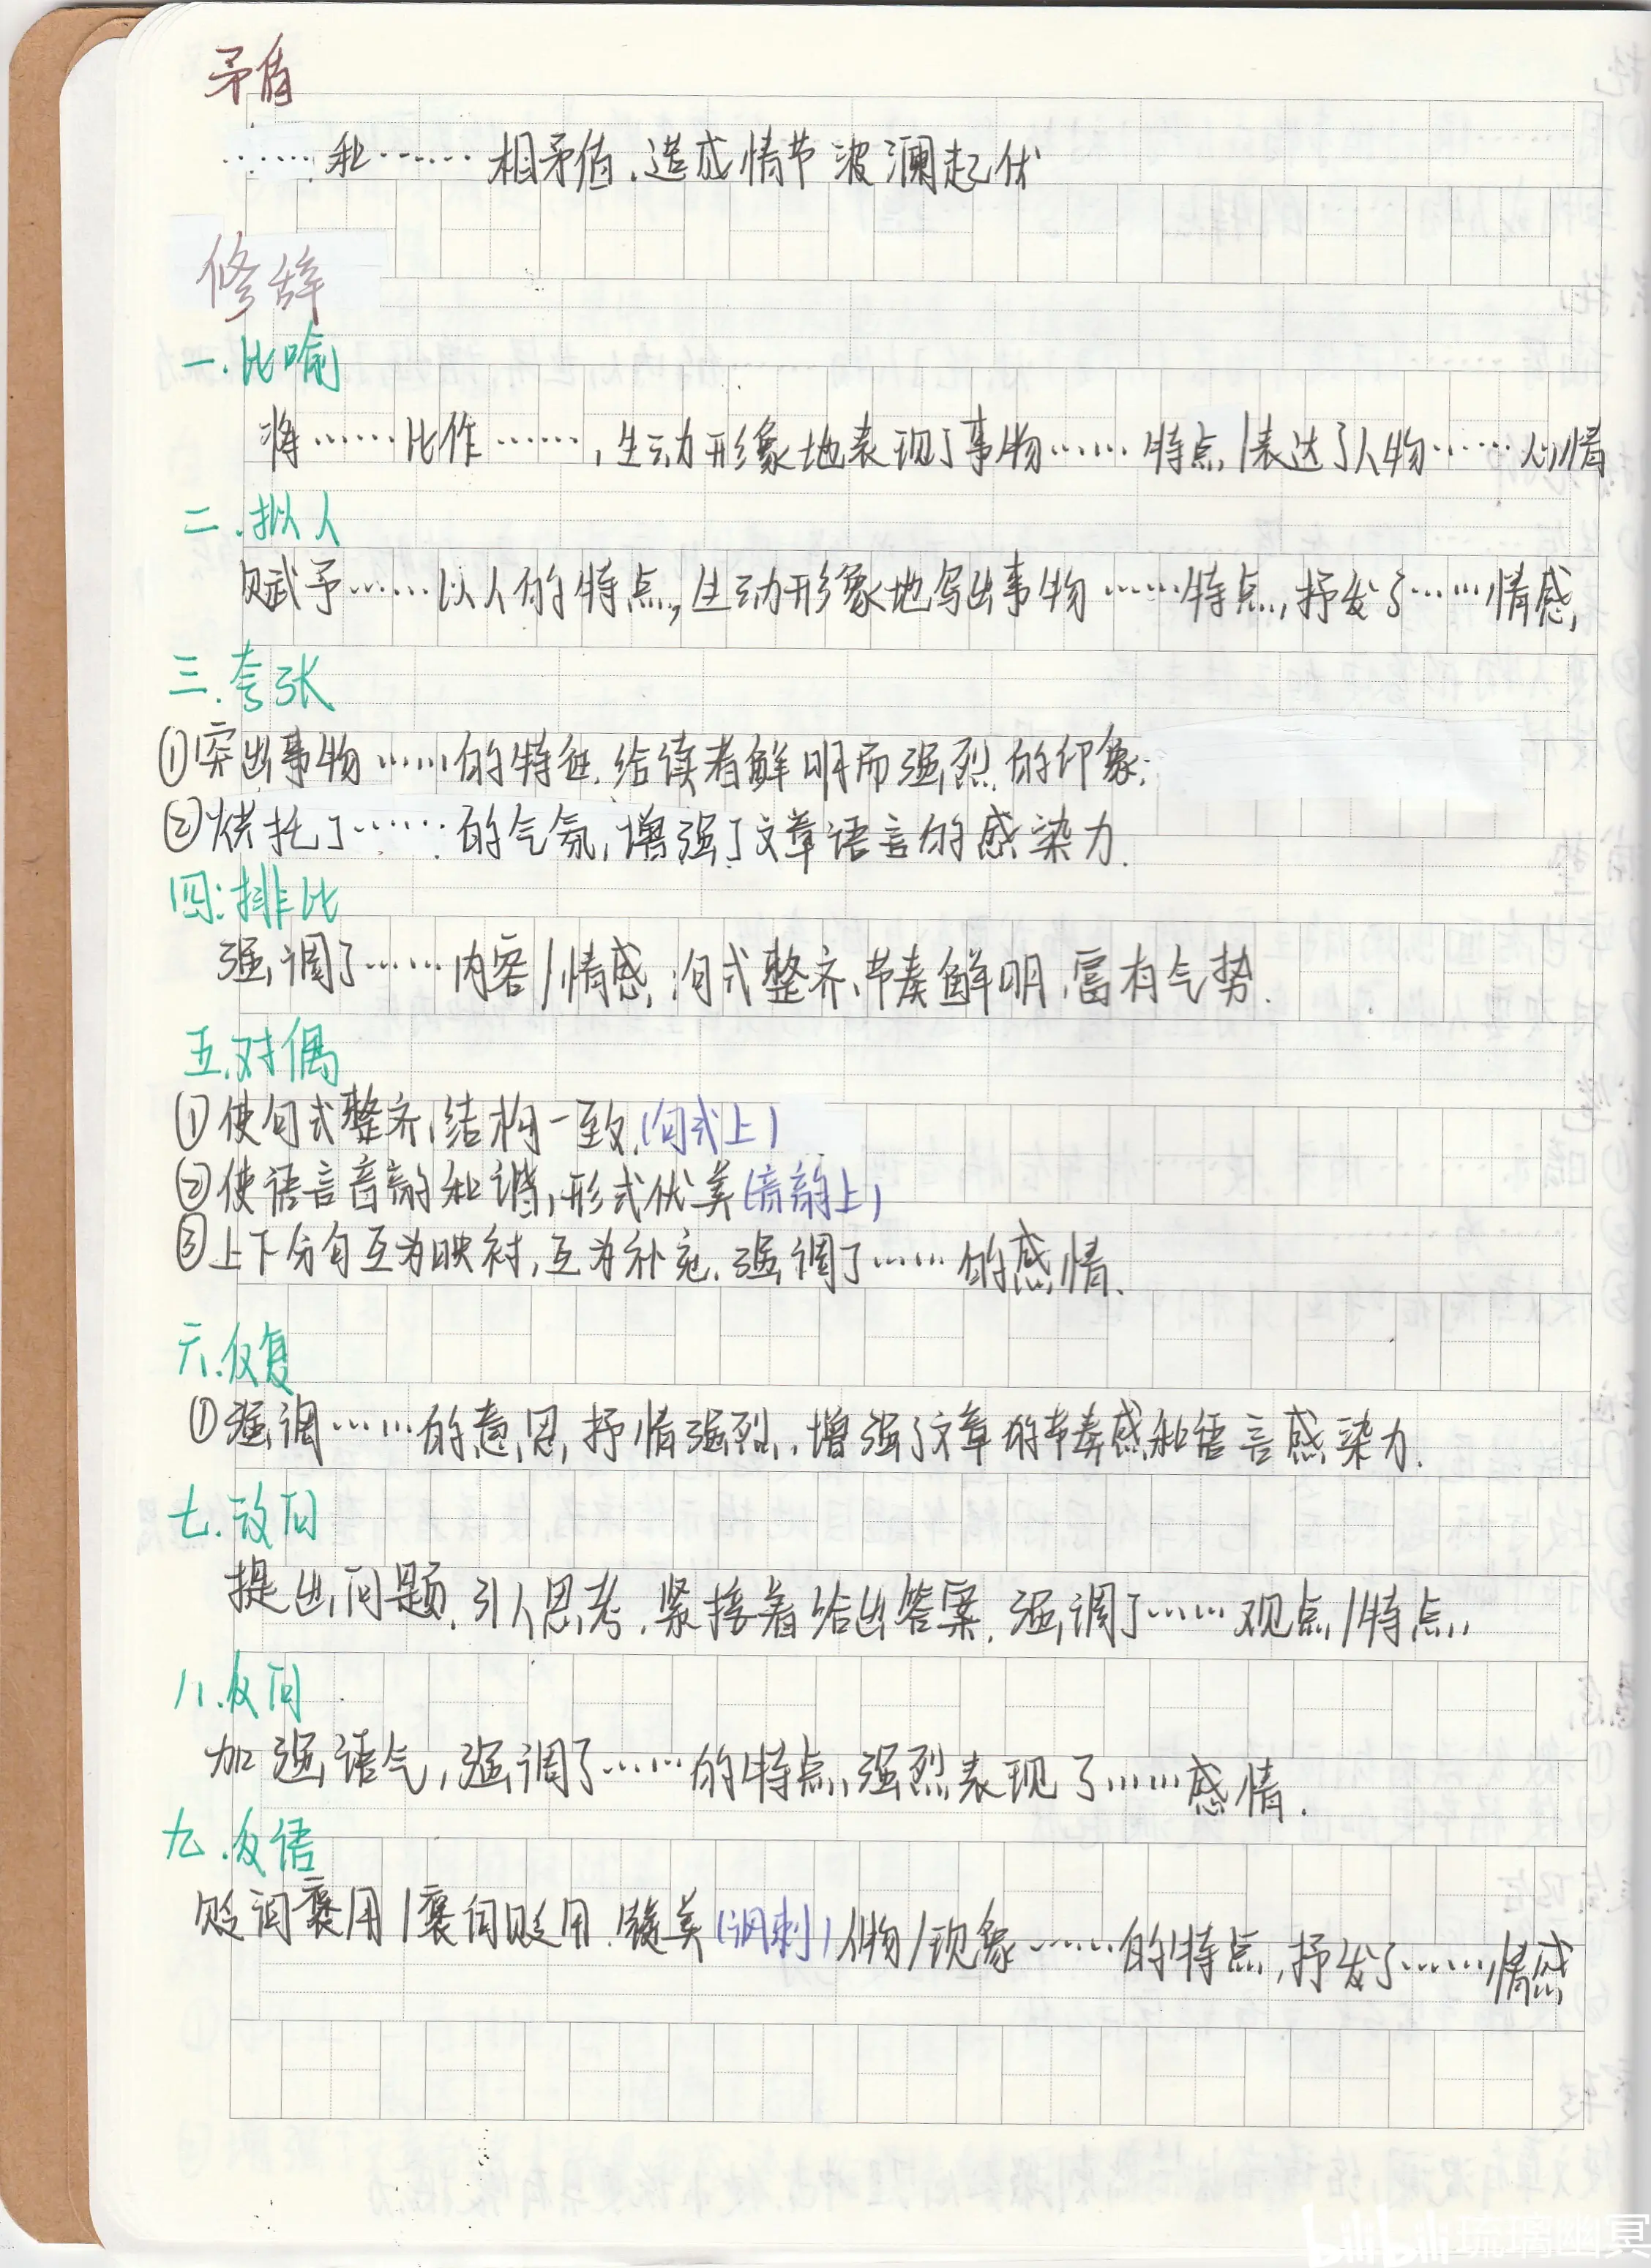 矛盾
……和……相矛盾,造成情节波澜起伏
修辞
一.比喻
将……比作……,生动形象地表现了事物……特点/表达了人物……心情
二.拟人
赋予……以人的特点,生动形象地写出事物……特点,抒发了……情感,
三.夸张
①突出事物……的特征,给读者鲜明而强烈的印象;
②烘托了……的气氛,增强了文章语言的感染力.
四.排比
强调了……内容/情感,句式整齐、节奏鲜明,富有气势.
五.对偶
①使句式整齐,结构一致,(句式上)
②使语言音韵和谐,形式优美(音韵上)
③上下分句互为映衬,互为补充,强调了……的感情.
六.反复
①强调……的意思,抒情强烈,增强了文章的节奏感和语言感染力.
七.设问
提出问题,引人思考,紧接着给出答案,强调了……观点/特点,
八.反问
加强语气,强调了……的特点,强烈表现了……感情.
九.反语
贬词褒用/褒词贬用,赞美(讽刺)人物/现象……的特点,抒发了……情感
bilibili 琉璃幽冥